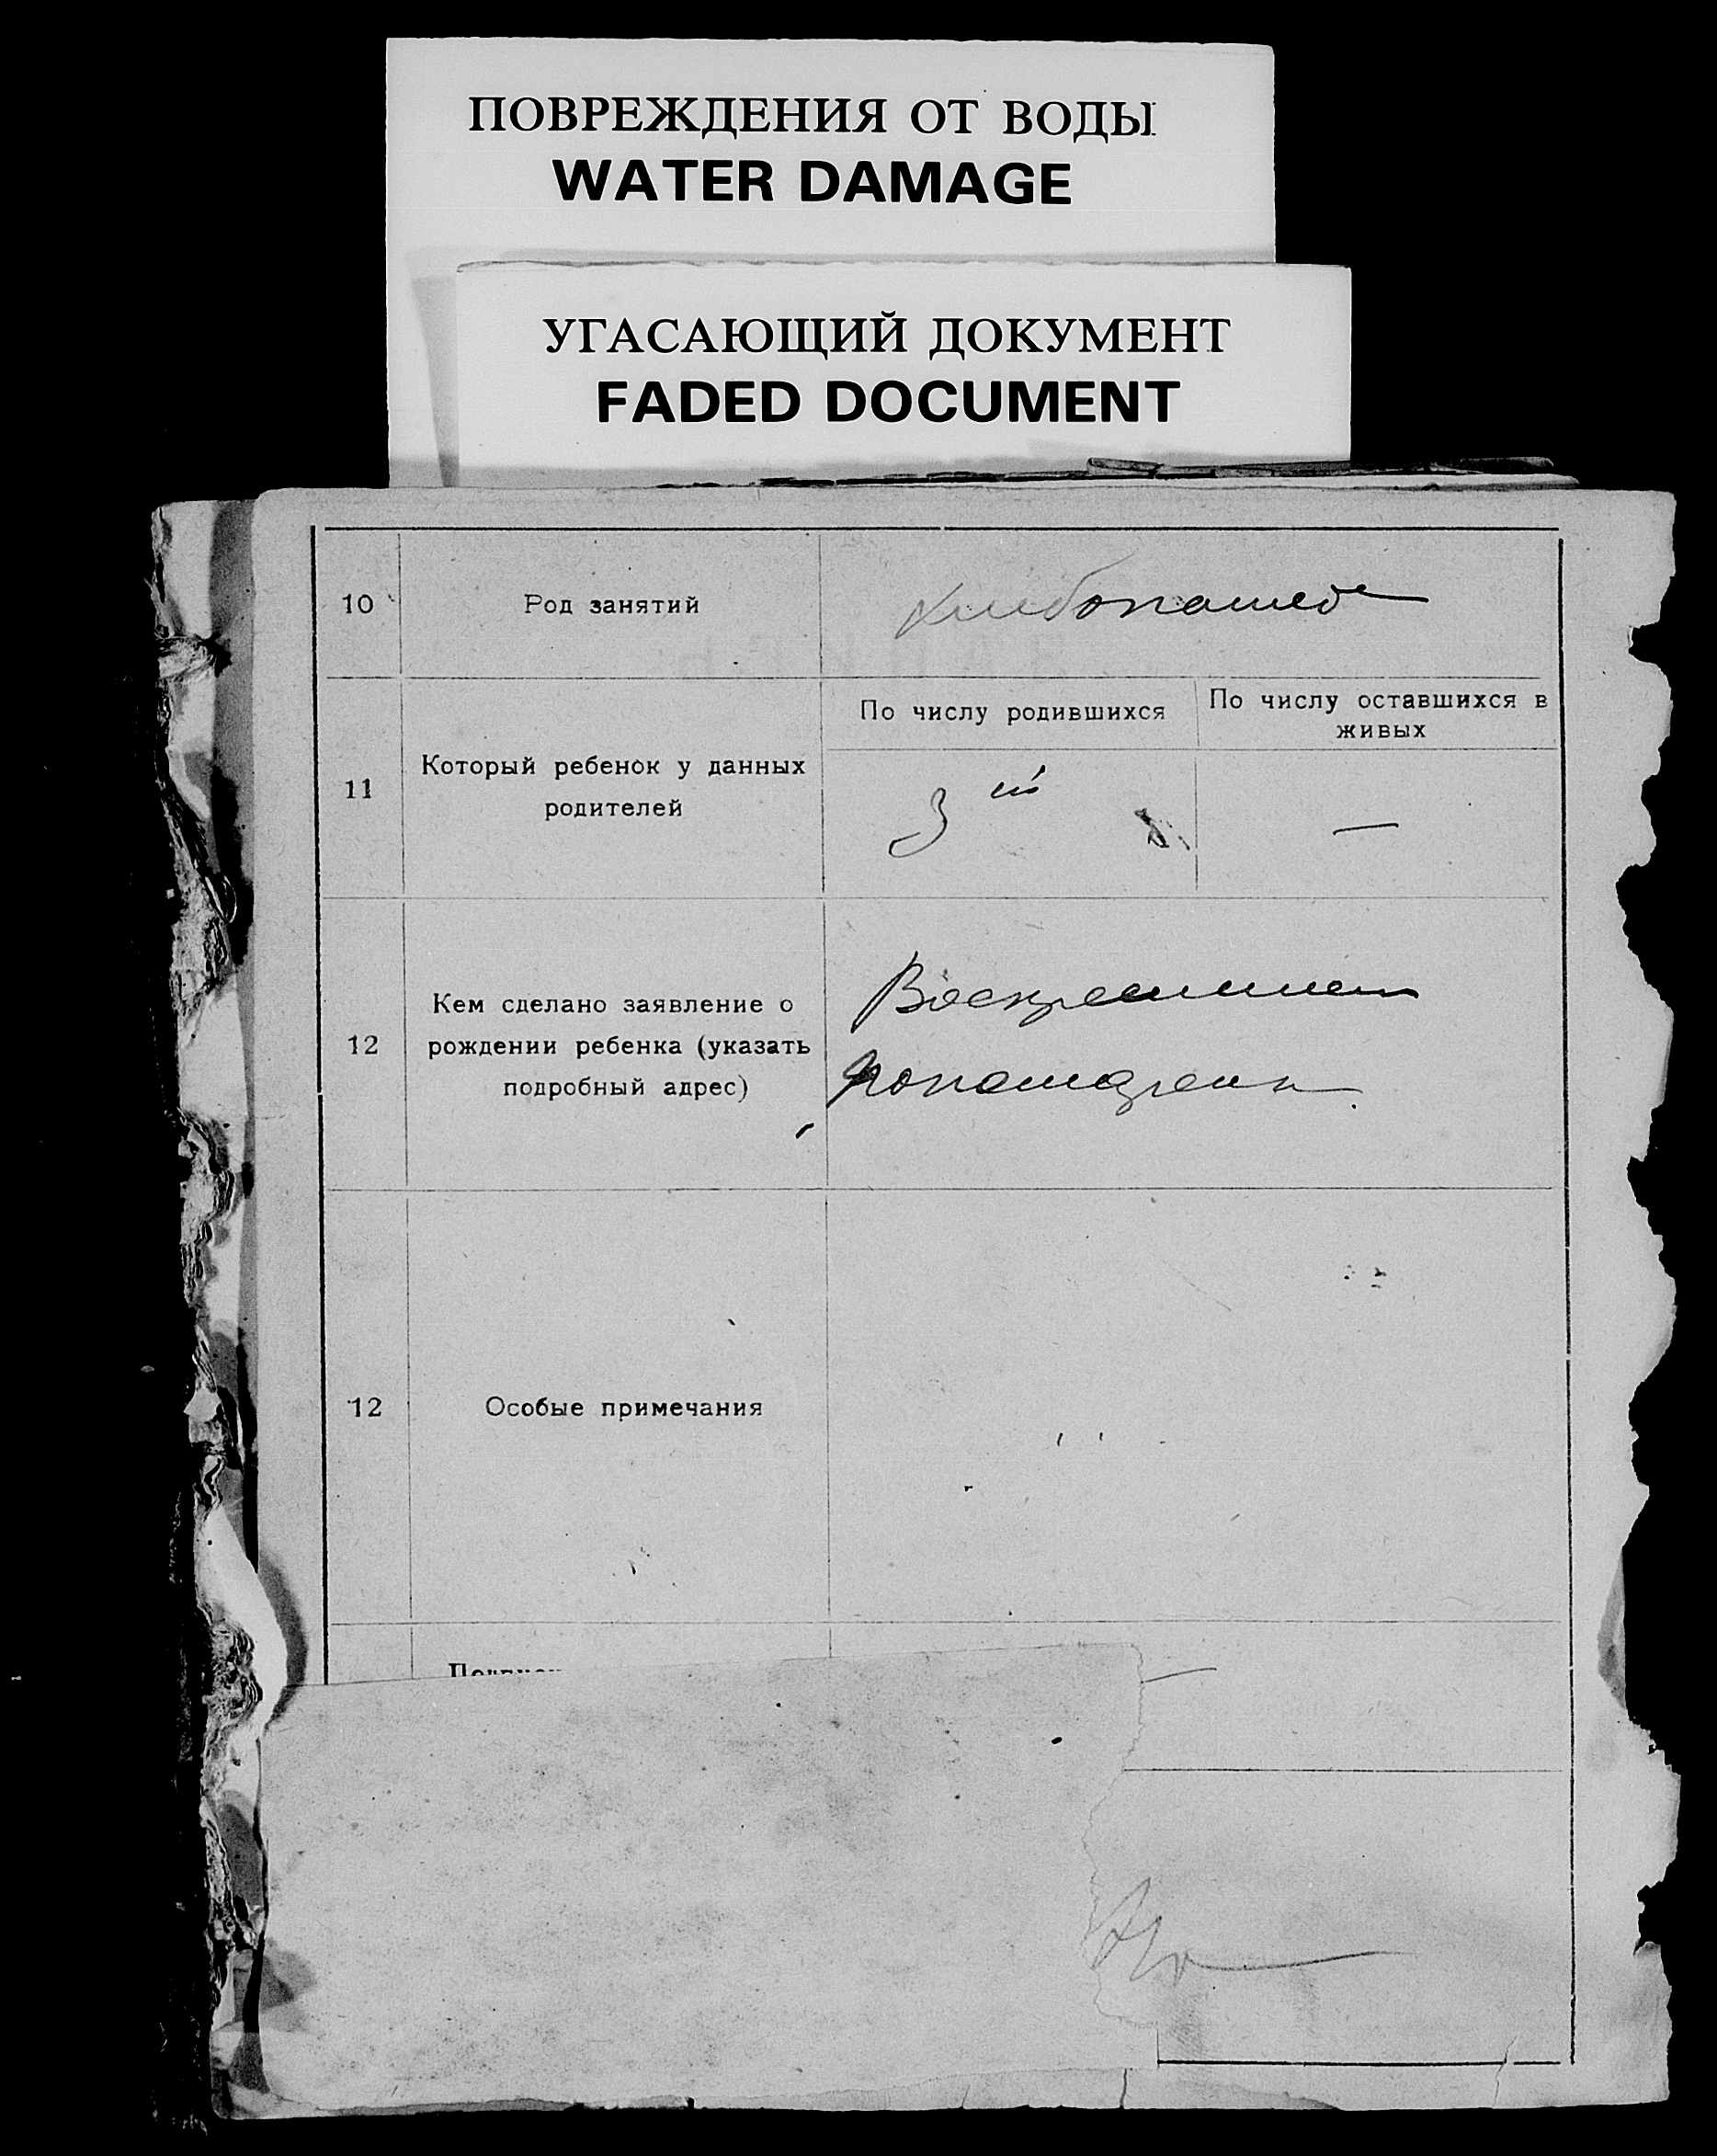 ПОВРЕЖДЕНИЯ ОТ ВОДЫ
WATER DAMAGE
УГАСАЮЩИЙ ДОКУМЕНТ
FADED DOCUMENT
10
Род занятий
хлебопашец
11
Который ребенок у данных
родителей
По числу родившихся
3 ий
По числу оставшихся в
живых
—
12
Кем сделано заявление о
рождении ребенка (указать
подробный адрес)
12
Особые примечания